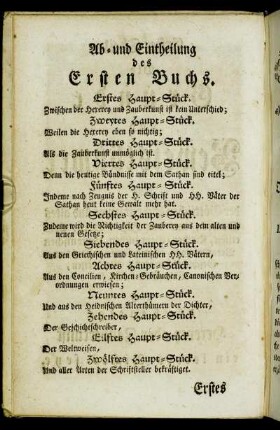 Ab- und Eintheilung
des
Ersten Buchs.
Erstes Haupt-Stück.
Zwischen der Hexerey und Zauberkunst ist kein Unterschied;
Zweytes Haupt-Stück.
Weilen die Hexerey eben so nichtig;
Drittes Haupt-Stück.
Als die Zauberkunst unmöglich ist.
Viertes Haupt-Stück.
Denn die heutige Bündnisse mit dem Sathan sind eitel;
Fünftes Haupt-Stück.
Indeme nach Zeugniß der H. Schrift und HH. Väter der
Sathan heut keine Gewalt mehr hat.
Sechstes Haupt-Stück.
Zudeme wird die Nichtigkeit der Zauberey aus dem alten und
neuen Gesetze;
Siebendes Haupt-Stück.
Aus den Griechischen und Lateinischen HH. Vätern,
Achtes Haupt-Stück.
Aus den Concilien, Kirchen-Gebräuchen, Canonischen Ver-
ordnungen erwiesen;
Neuntes Haupt-Stück.
Und aus den Heidnischen Alterthümern der Dichter,
Zehendes Haupt-Stück.
Der Geschichtschreiber,
Eilftes Haupt-Stück.
Der Weltweisen,
Zwölftes Haupt-Stück.
Und aller Arten der Schriftsteller bekräftiget.
Erstes